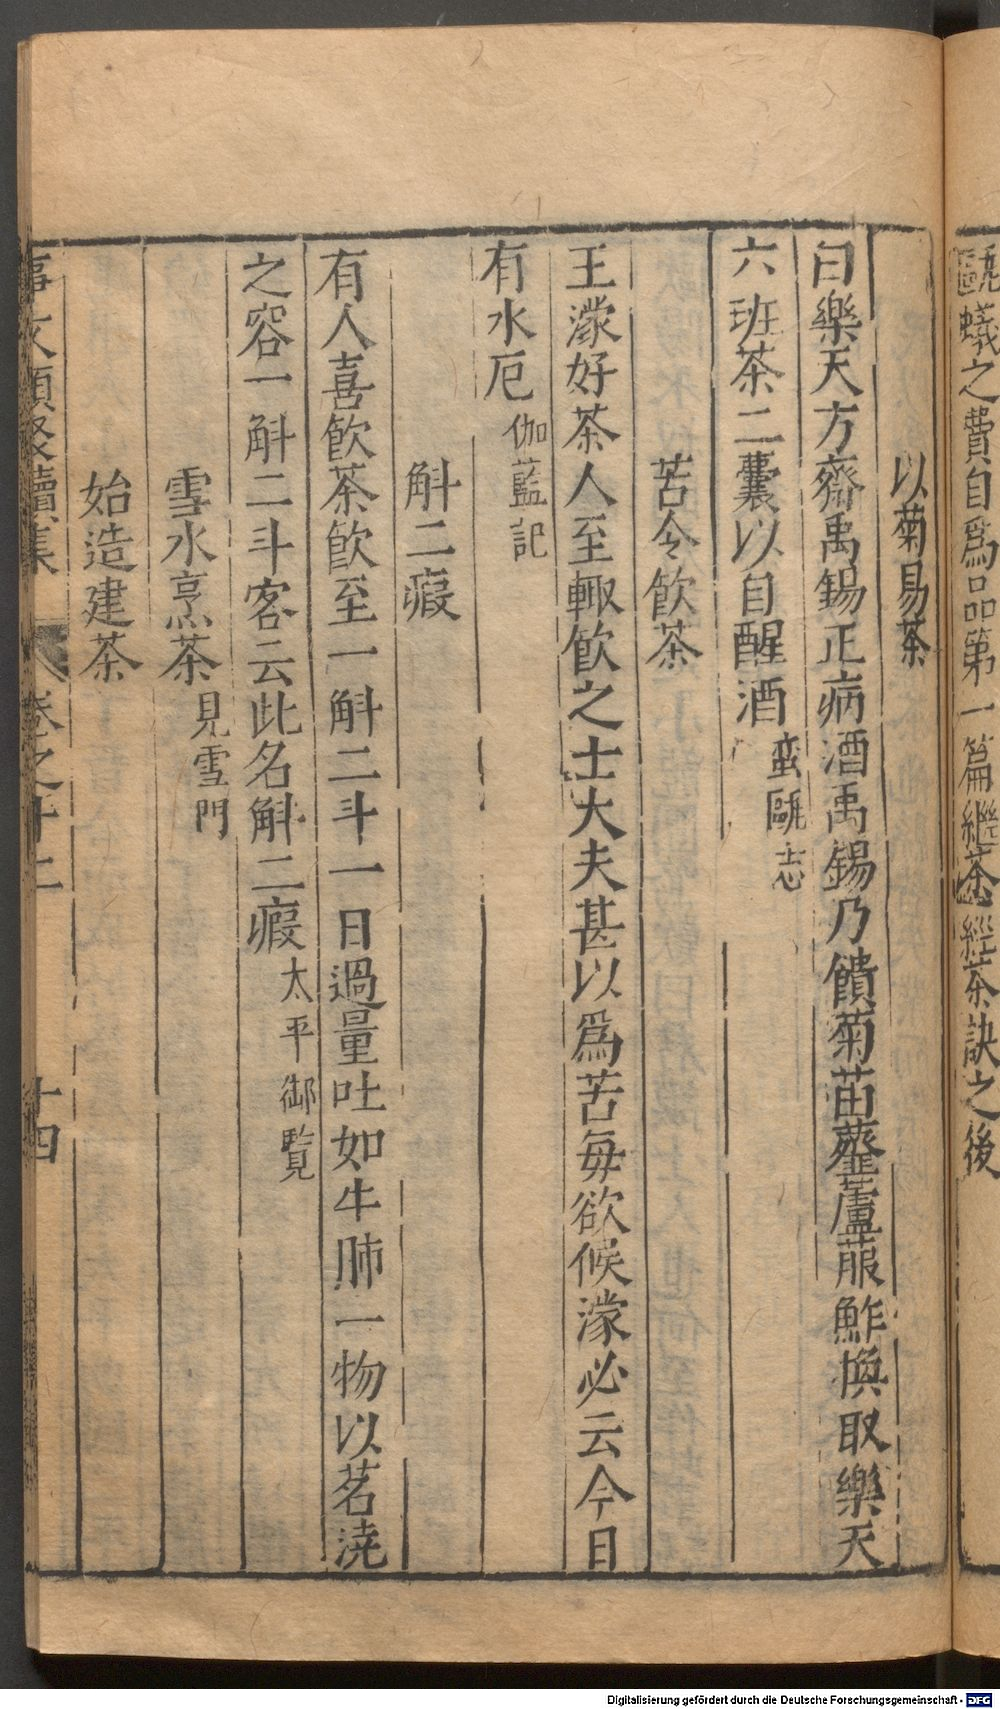 甌蟻之費自爲品第一篇繼茶經茶訣之後
以菊易茶
白樂天方齋禹錫正病酒禹錫乃饋菊苗虀蘆菔鮓換取樂天
六班茶二囊以自醒酒 蛮甌志
苦令飲茶
王濛好茶人至輙飲之士大夫甚以爲苦毎欲候濛必云今日
有水厄 伽藍記
斛二瘕
有人喜飲茶飲至一斛二斗一日過量吐如牛肺一物以茗澆
之容一斛二斗客云此名斛二瘕 太平御覧
雪水烹茶 見雪門
始造建茶
事文類聚續集 卷之十二 十四
Digitalisierung gefördert durch die Deutsche Forschungsgemeinschaft - DFG